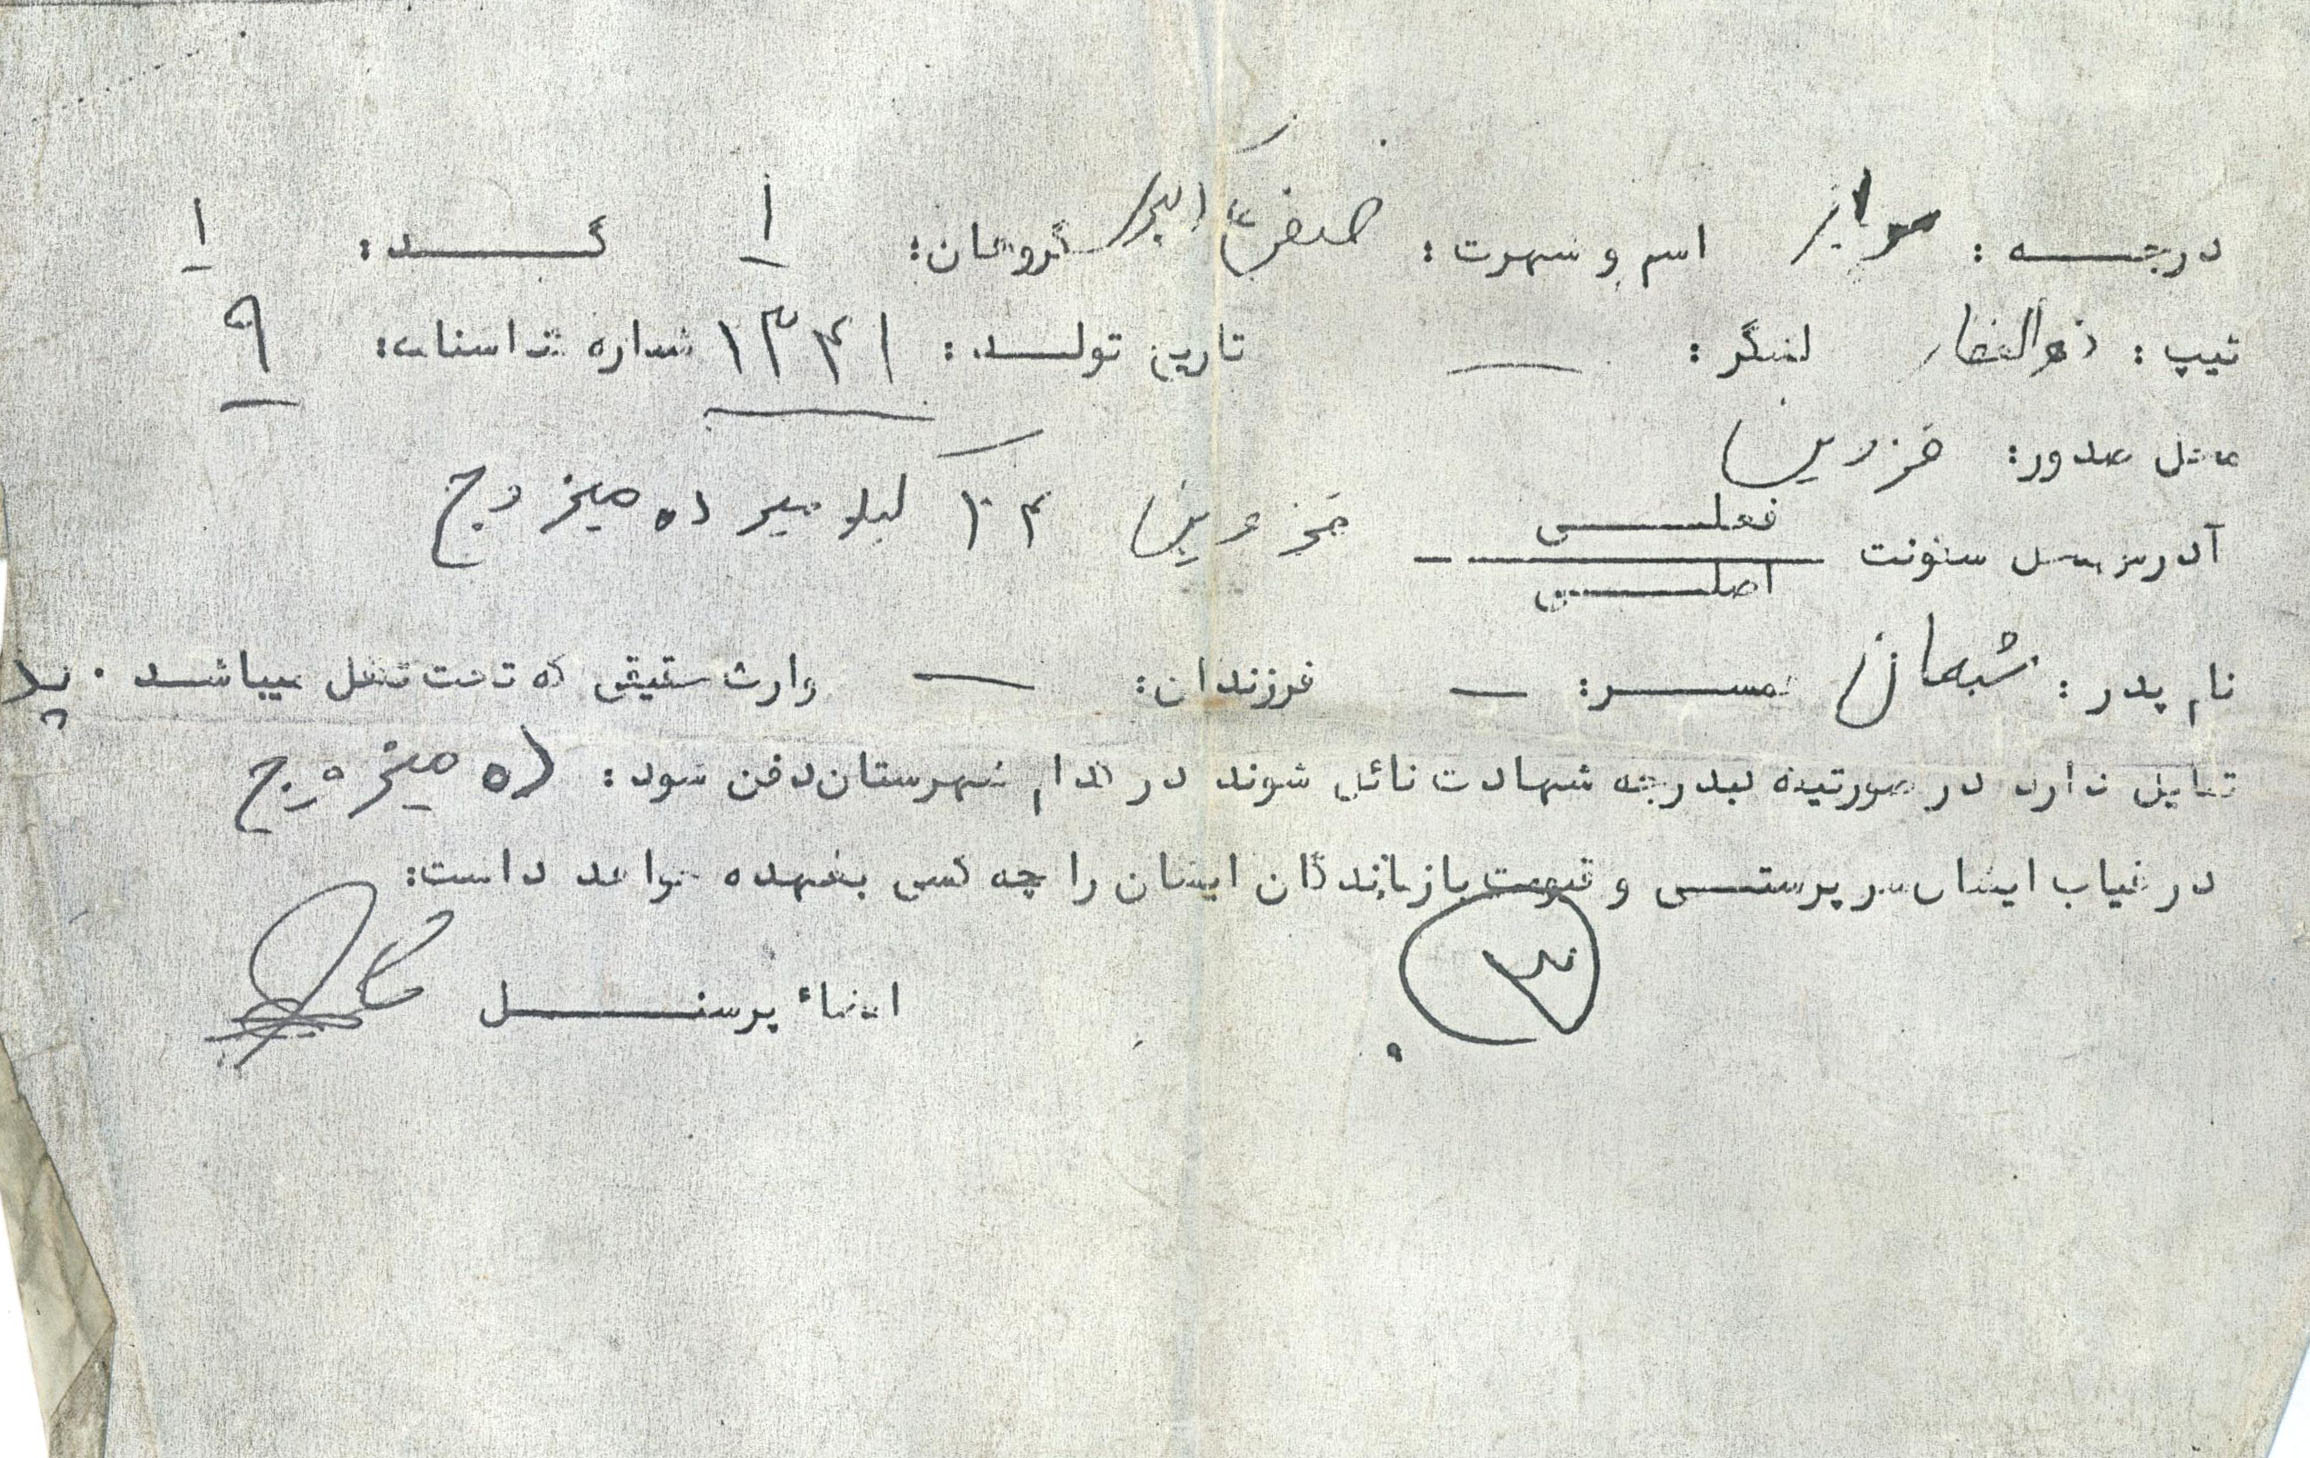 درجه : سرباز اسم و شهرت : اکبر گروهان: ۱ گد: ۱
تیپ : ذوالفقار لشگر: — تاریخ تولد: ۱۳۴۱ شماره شناسنامه: ۹
محل صدور: قزوین
آدرس محل سکونت فعلی / اصلی — قزوین ۲۰ کیلومتر ده میخروج
نام پدر : شعبان همسر: — فرزندان: — وارث حقیقی که تحت تکفل میباشد . پدر
تمایل دارد در صورتیکه بدرجه شهادت نائل شوند در کدام شهرستان دفن شود: ده میخروج
در غیاب ایشان سرپرستی و قیمومت بازماندگان ایشان را چه کسی بعهده خواهد داشت:
امضاء پرسنل